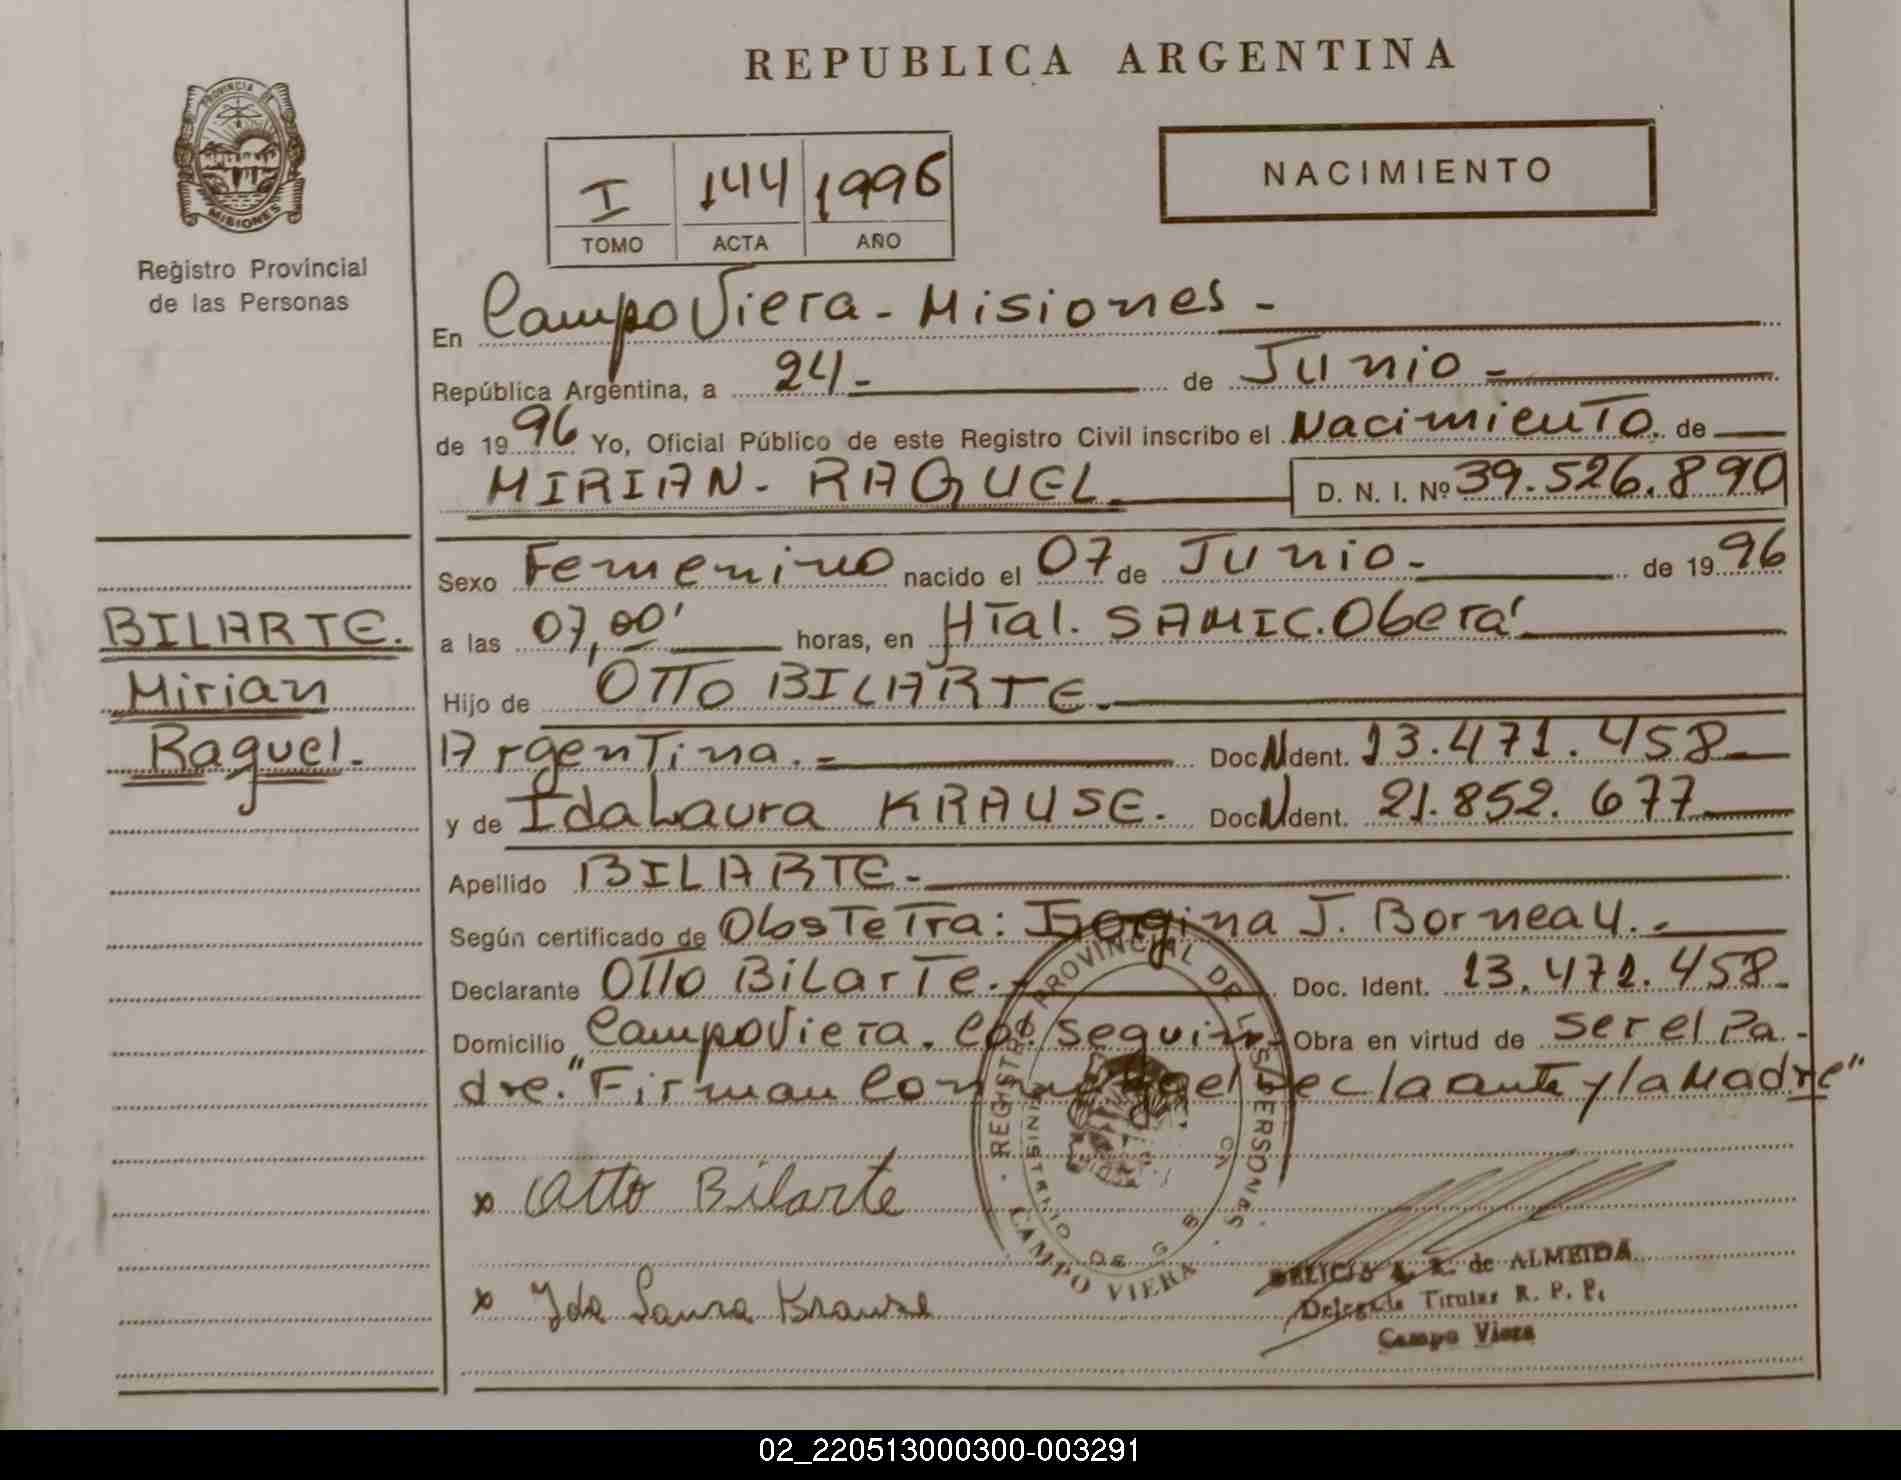 REPUBLICA ARGENTINA
PROVINCIA DE
MISIONES
Registro Provincial
de las Personas
NACIMIENTO
I 144 1996
TOMO ACTA AÑO
En Campo Viera - Misiones -
República Argentina, a 24 - de Junio -
de 1996 Yo, Oficial Público de este Registro Civil inscribo el Nacimiento. de
MIRIAN - RAQUEL. D. N. I. Nº 39.526.890
Sexo Femenino nacido el 07 de Junio - de 1996
BILARTE.
Mirian
Raquel.
a las 07,00' horas, en Htal. SAMIC. Oberá
Hijo de OTTO BILARTE.
Argentina. - Doc N Ident. 13.471.458
y de Ida Laura KRAUSE. Doc N Ident. 21.852.677
Apellido BILARTE -
Según certificado de Obstetra: J. Borneau. -
Declarante Otto Bilarte. - Doc. Ident. 13.471.458 -
Domicilio Campo Viera. Obra en virtud de ser el Pa -
dre. "Firman el declaante y la Madre"
x Otto Bilarte
x Ida Laura Krause
REGISTRO PROVINCIAL DE LAS PERSONAS
CAMPO VIERA
DELICIA de ALMEIDA
Delegada Titular R. P. P.
Campo Viera
02_220513000300-003291